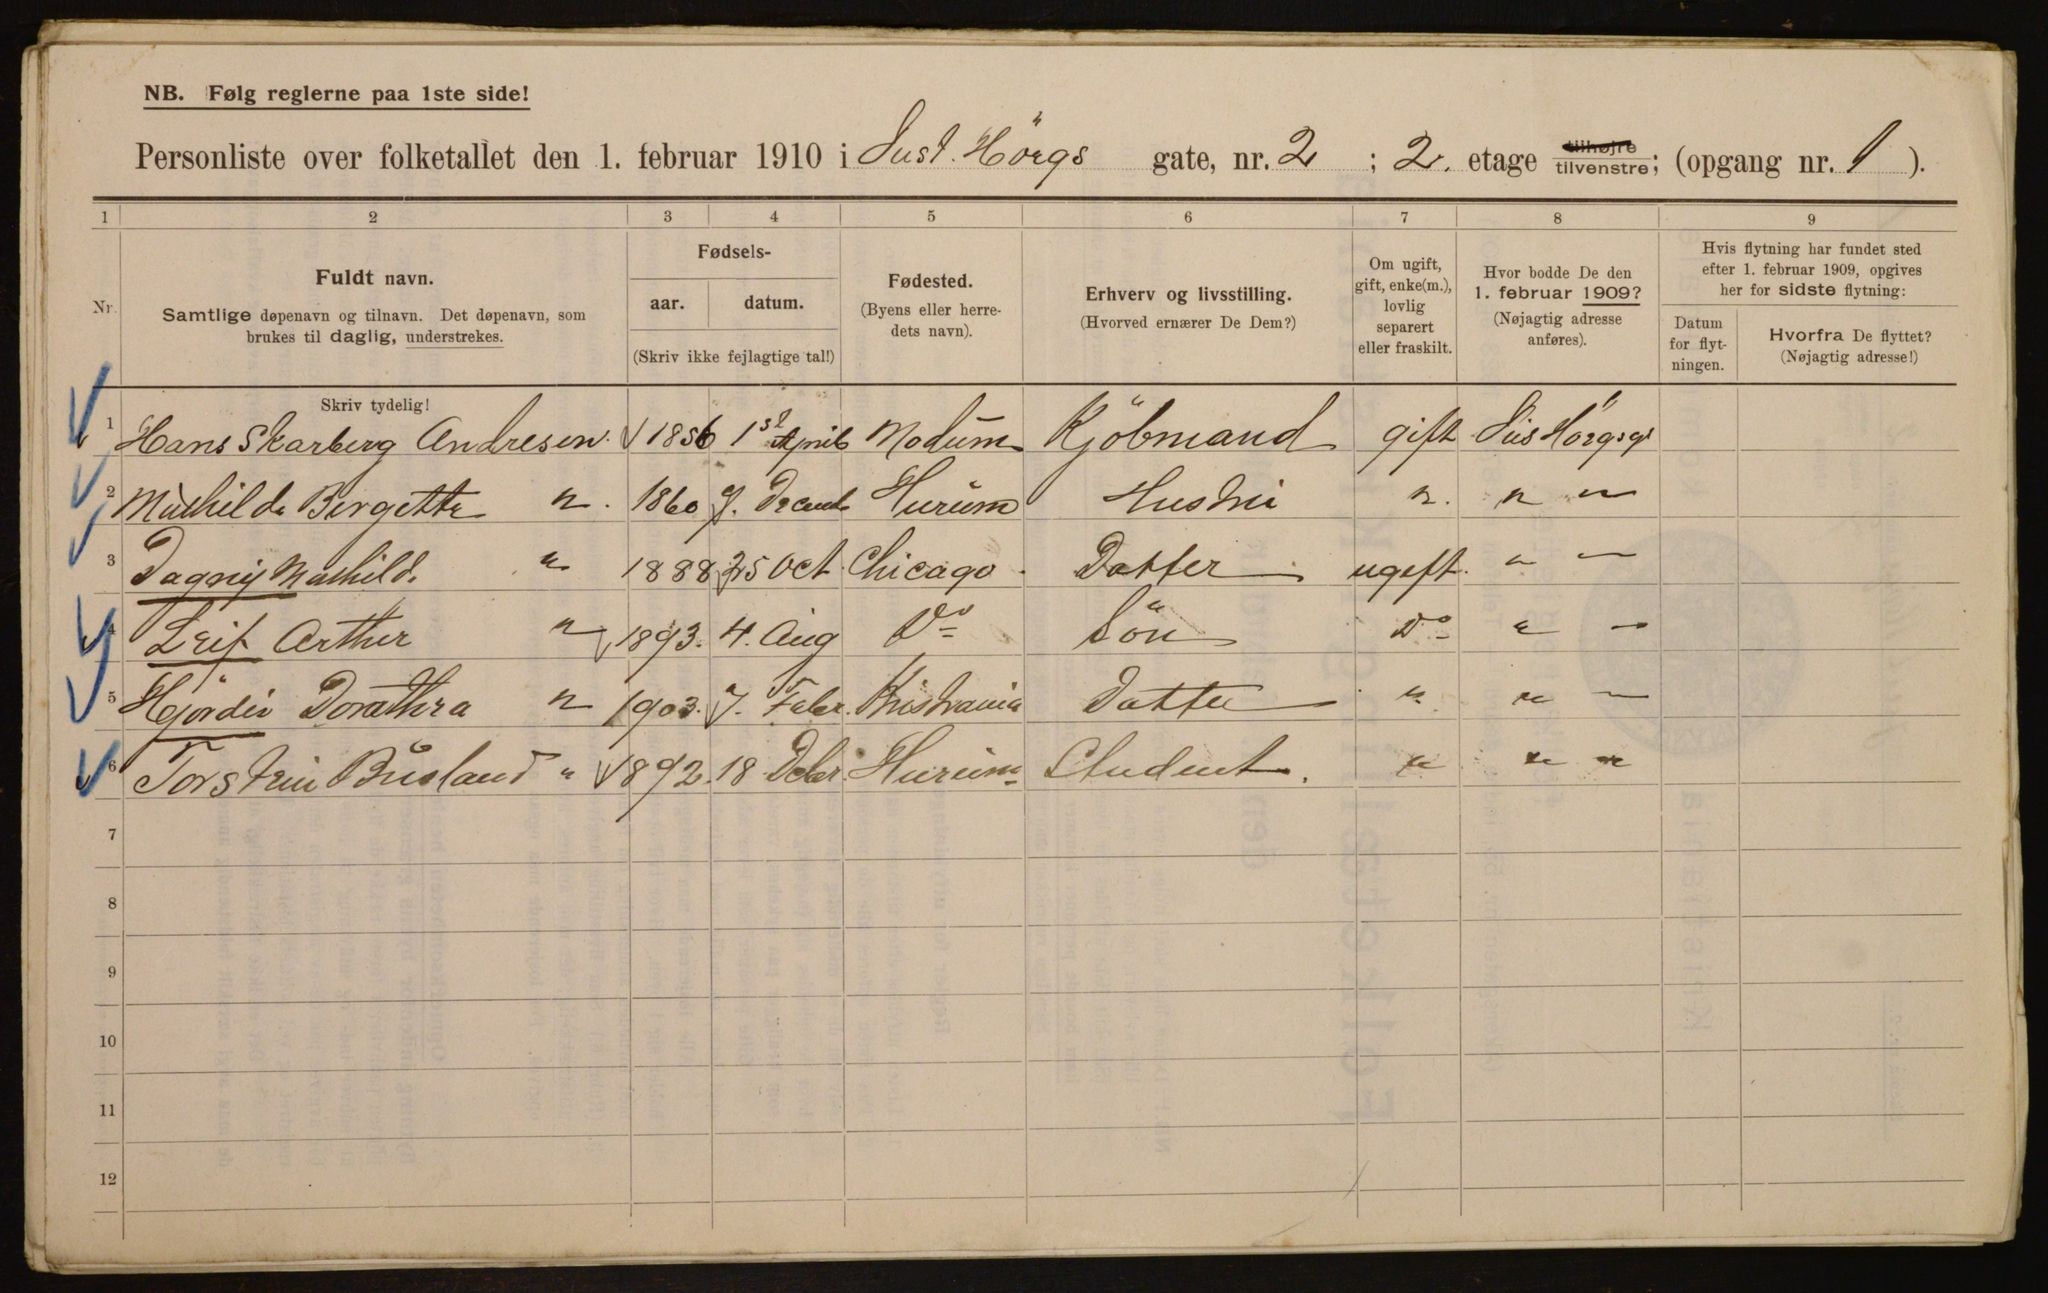 NB. Følg reglerne paa 1ste side!
Personliste over folketallet den 1. februar 1910 i Just. Hörgs gate, nr. 2 ; 2. etage tilhøjre tilvenstre; (opgang nr. 1 ).
1 2 3 4 5 6 7 8 9
Nr.
Fuldt navn.
Samtlige døpenavn og tilnavn. Det døpenavn, som
brukes til daglig, understrekes.
Skriv tydelig!
Fødsels-
aar. datum.
(Skriv ikke fejlagtige tal!)
Fødested.
(Byens eller herre-
dets navn).
Erhverv og livsstilling.
(Hvorved ernærer De Dem?)
Om ugift,
gift, enke(m.),
lovlig
separert
eller fraskilt.
Hvor bodde De den
1. februar 1909?
(Nøjagtig adresse
anføres).
Hvis flytning har fundet sted
efter 1. februar 1909, opgives
her for sidste flytning:
Datum
for flyt-
ningen.
Hvorfra De flyttet?
(Nøjagtig adresse!)
1 Hans Skarberg Andresen. 1856 1st April Modum Kjöbmand gift Hörgsg
2 Mathilde Bergette " 1860 Decemb Hurum Hustru " " "
3 Dagny Mathilde " 1888 25 Oct Chicago Datter ugift " "
4 Leif Arthur " 1893. 4. Aug Do Sön Do " "
5 Hjördis Dorathea " 1903. 7. Febr. Kristiania Datter " " "
6 Torstein Büsland " 1892. 18 Debr Hurum Student. " " "
7
8
9
10
11
12